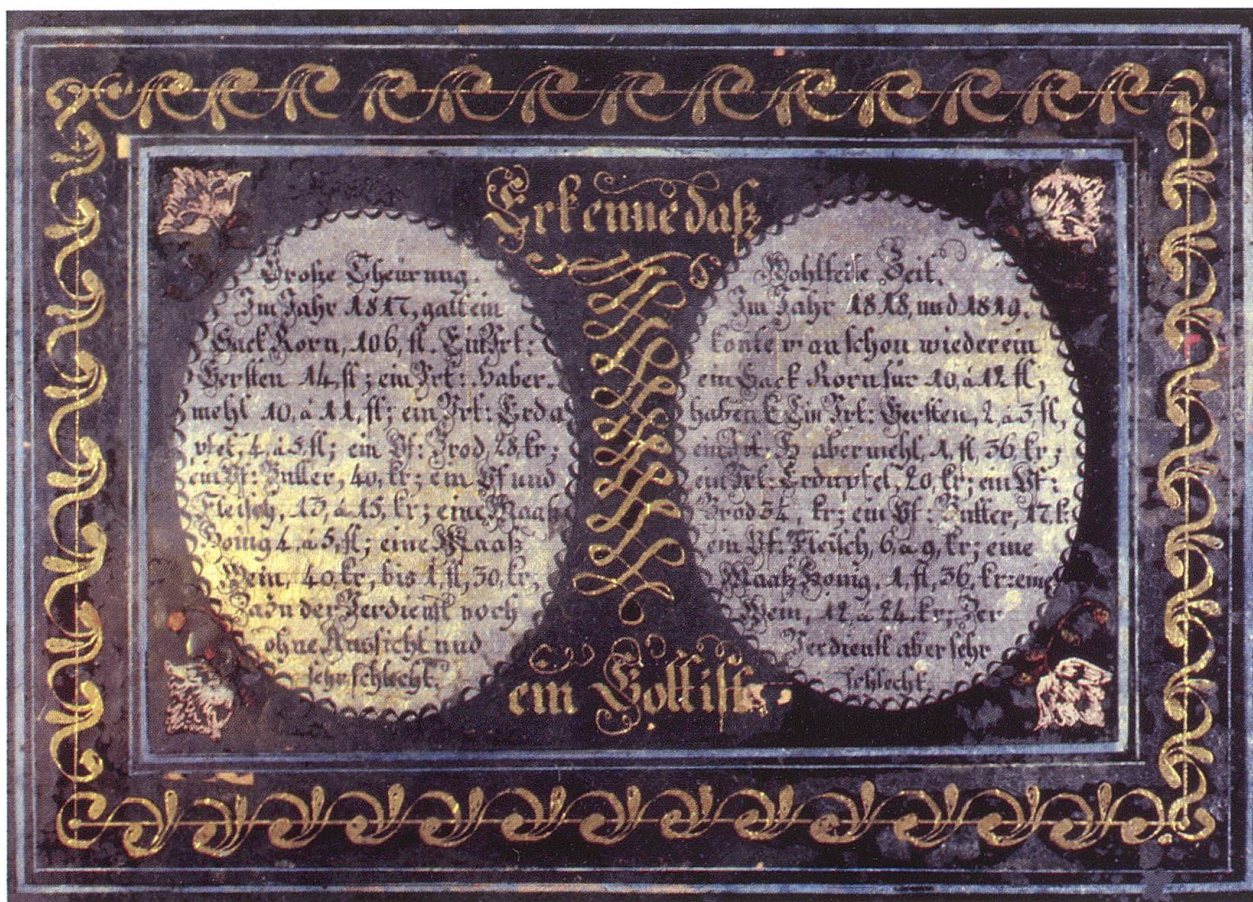 Erkenne daß
Große Theurung.
Im Jahr 1817, galt ein
Sack Korn, 106, fl. Ein Vrt:
Gersten 14, fl; ein Vrt: Haber-
mehl 10, à 11, fl; ein Vrt: Erda
pfel, 4, à 5, fl; ein Pf: Brod, 28, kr;
ein Pf: Butter, 40, kr; ein Pfund
Fleisch, 13 à 15, kr; eine Maaß
Honig 4, à 5, fl; eine Maaß
Wein, 40, kr, bis 1, fl, 30, kr,
der Verdienst noch
ohne Aussicht und
sehr schlecht.
Wohlfeile Zeit.
Im Jahr 1818, und 1819,
konte man schon wieder ein
ein Sack Korn für 10, à 12 fl,
haben Ein Vrt: Gersten, 2, à 3, fl,
ein Vrt, Habermehl, 1, fl, 36, kr;
ein Vrt: Erdapfel, 20, kr; ein Pf:
Brod 54, kr; ein Pf: Butter, 17, k
ein Pf: Fleisch, 6, à 9, kr; eine
Maaß Honig, 1, fl, 36, kr: eine
Wein, 12 à 24, kr; Der
Verdienst aber sehr
schlecht.
ein Gott ist.